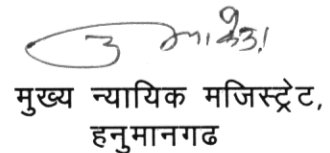 मुख्य न्यायिक मजिस्ट्रेट,
हनुमानगढ